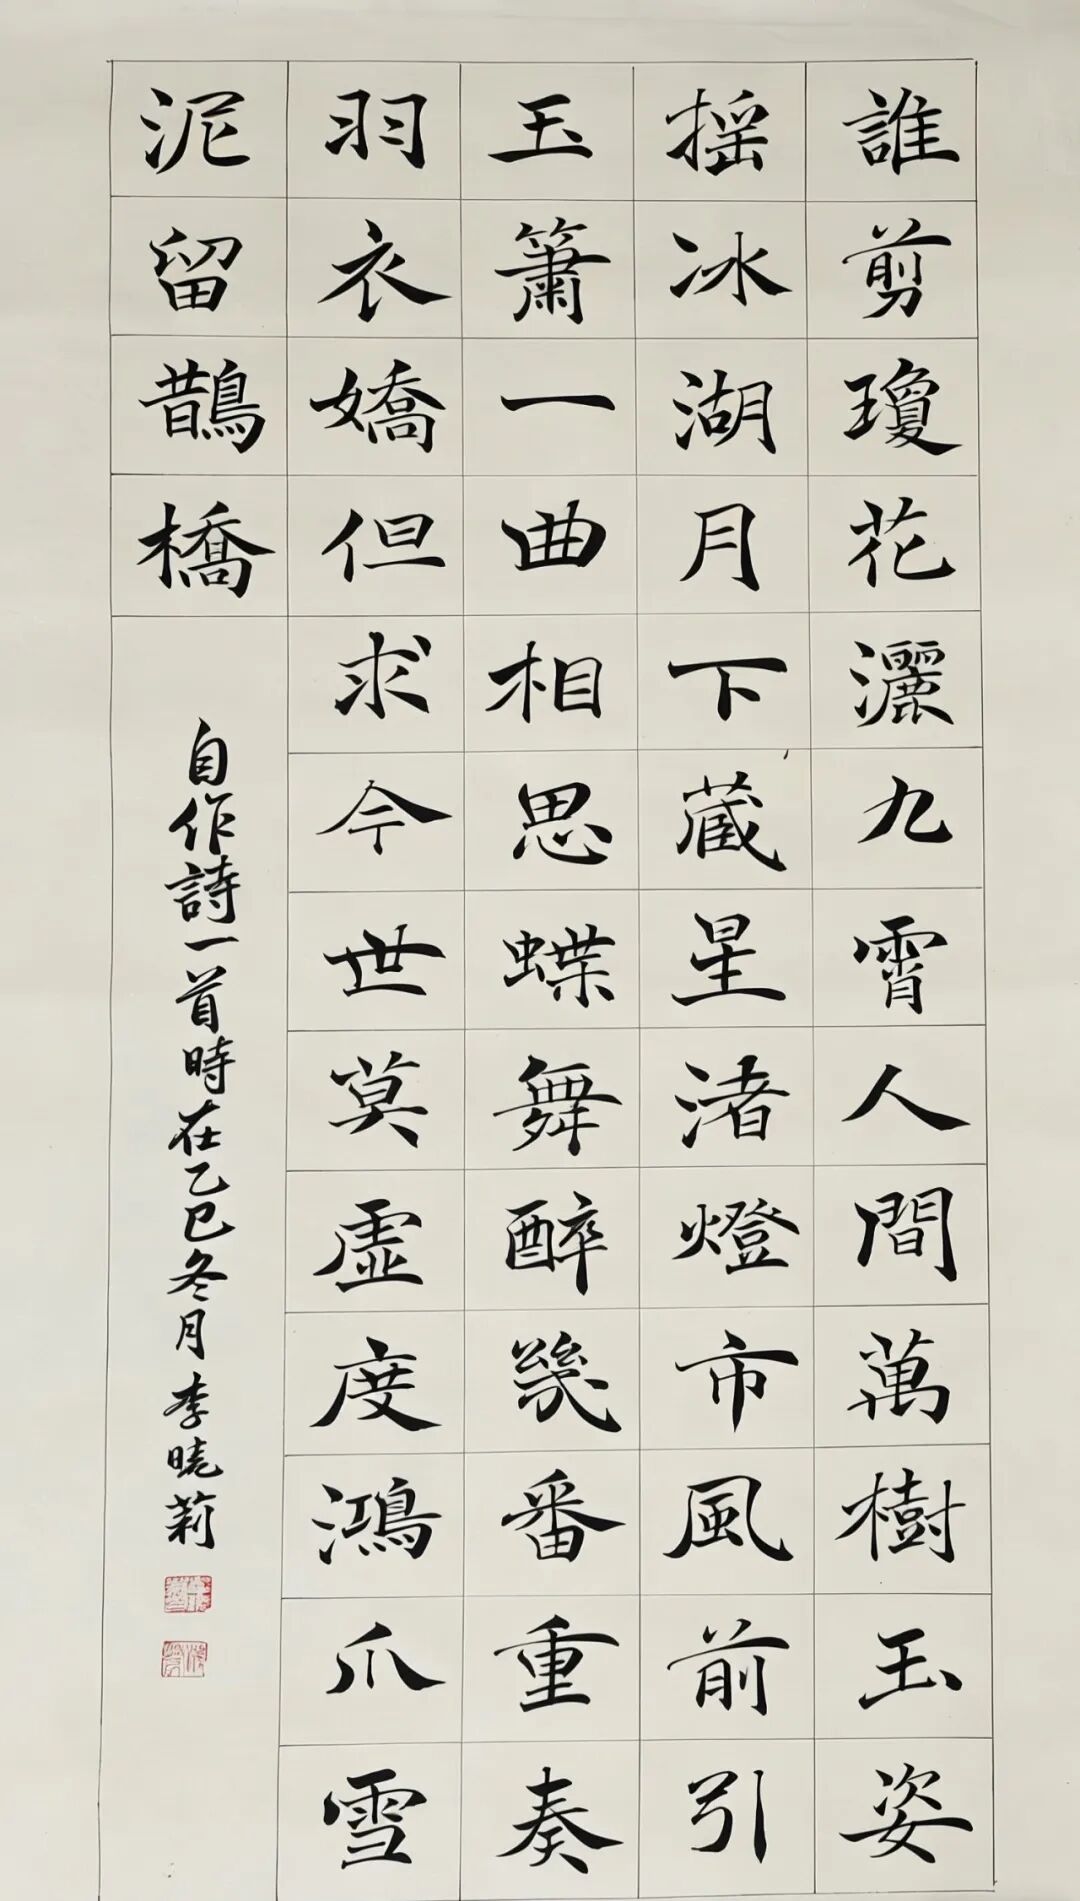 誰剪瓊花灑九霄人間萬樹玉姿
揺冰湖月下蔵星渚燈市風前引
玉簫一曲相思蝶舞醉幾番重奏
羽衣嬌但求今世莫虛度鴻爪雪
泥留鵲橋
自作詩一首時在乙巳冬月李曉莉